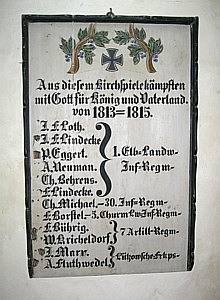 Aus diesem Kirchspiele kämpften
mit Gott für König und Vaterland.
von 1813–1815.
J. F. Loth.
J. F. Lindecke
P. Eggert.
A. Neuman.
Ch. Behrens.
F. Lindecke.
1. Elb-Landw
Inf-Regm-
Ch. Michael.-30. Inf-Regm-
F. Borstel.-5. Churm Lw Inf-Regm
F. Bührig.
W. Kricheldorf
7 Artill-Regm-
J. Marx.
A. Fluthwedel.
Lützowsche Frkps-